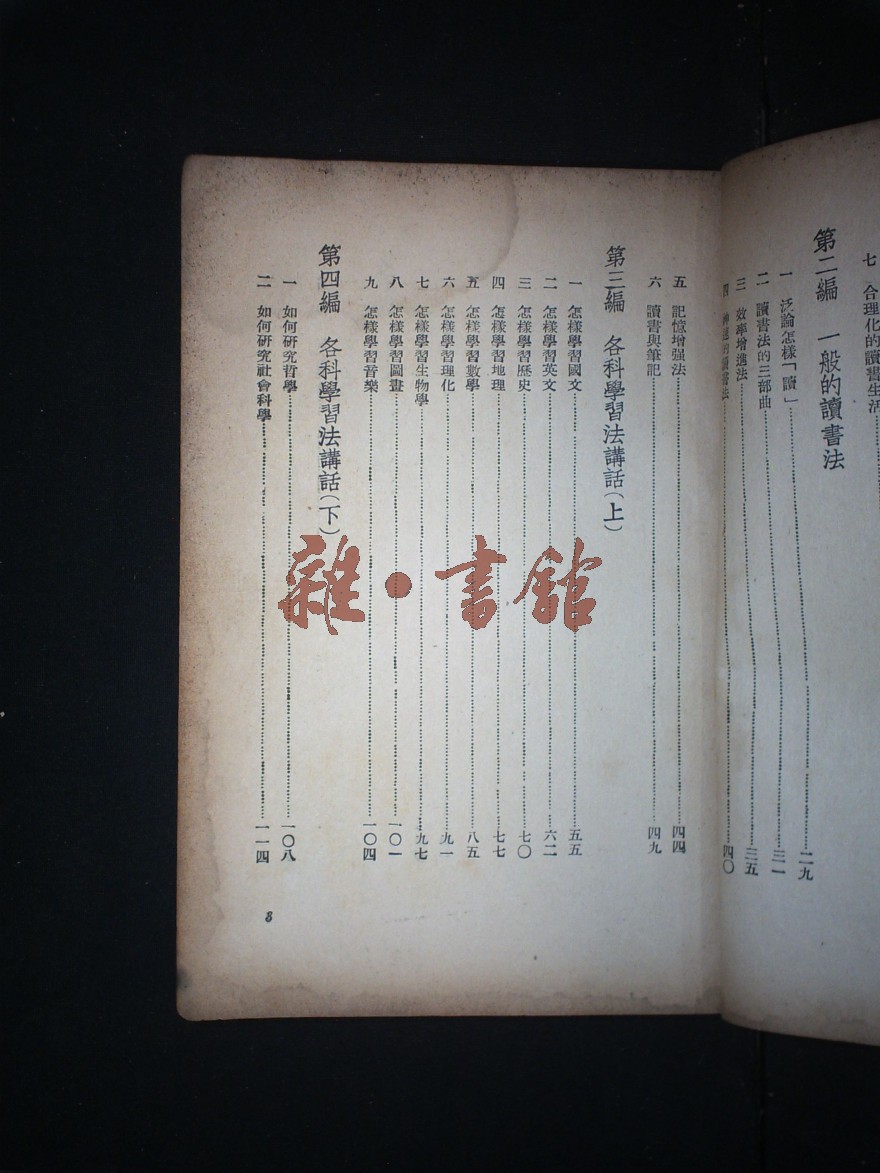 七 合理化的讀書生活
第二編 一般的讀書法
一 泛論怎樣「讀」……二九
二 讀書法的三部曲……三一
三 效率增進法……三五
四 神速的讀書法……四〇
五 記憶增强法……四四
六 讀書與筆記……四九
第三編 各科學習法講話(上)
一 怎樣學習國文……五五
二 怎樣學習英文……六二
三 怎樣學習歷史……七〇
四 怎樣學習地理……七七
五 怎樣學習數學……八五
六 怎樣學習理化……九一
七 怎樣學習生物學……九七
八 怎樣學習圖畫……一〇一
九 怎樣學習音樂……一〇四
第四編 各科學習法講話(下)
一 如何研究哲學……一〇八
二 如何研究社會科學……一一四
8
雜•書館